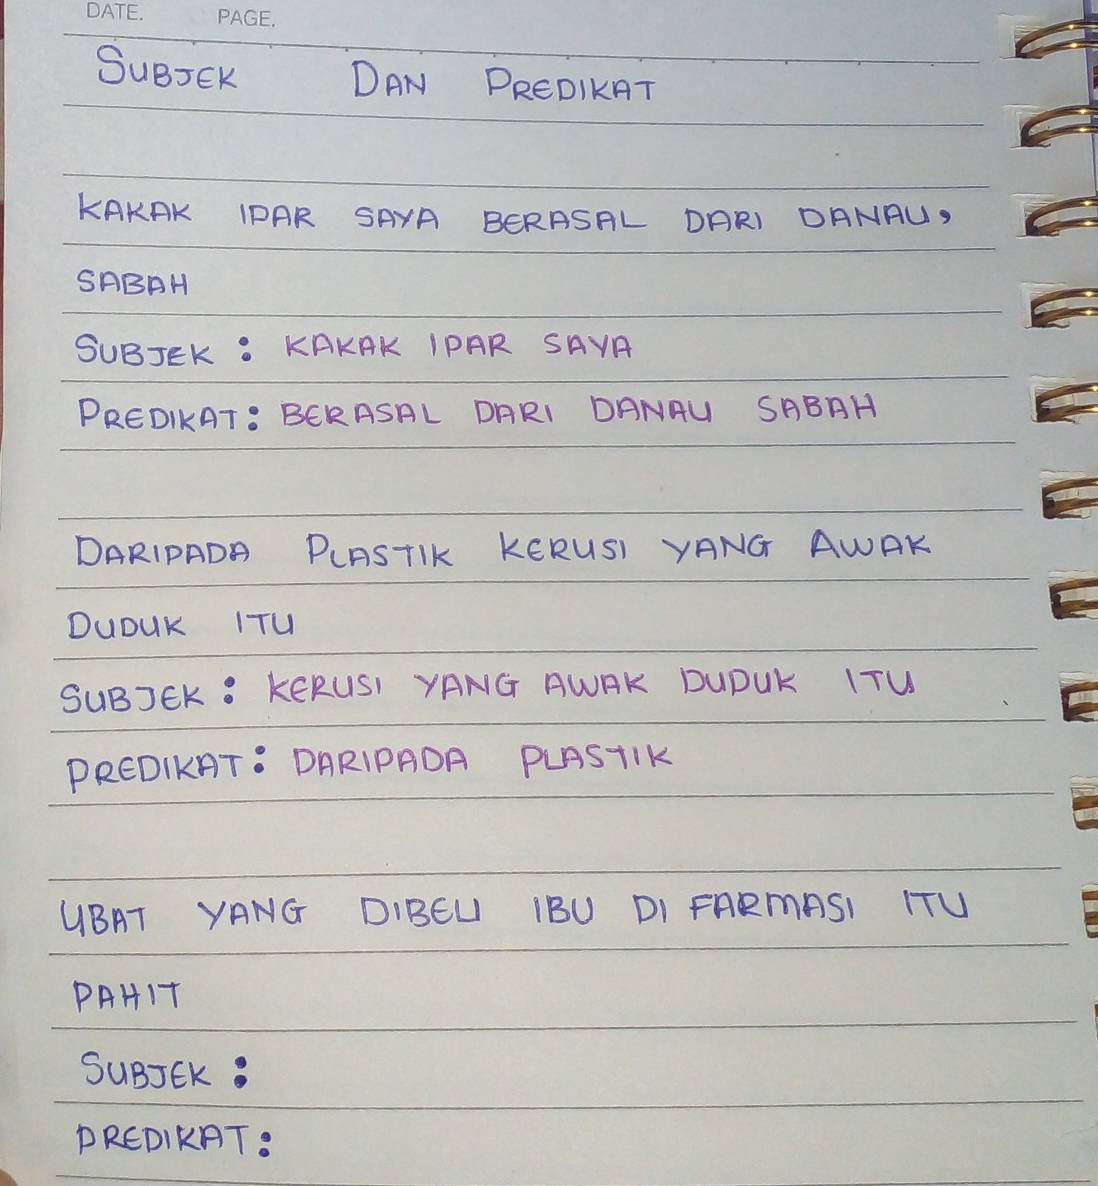 DATE. PAGE.
SUBJEK DAN PREDIKAT
KAKAK IPAR SAYA BERASAL DARI DANAU,
SABAH
SUBJEK : KAKAK IPAR SAYA
PREDIKAT: BERASAL DARI DANAU SABAH
DARIPADA PLASTIK KERUSI YANG AWAK
DUDUK ITU
SUBJEK : KERUSI YANG AWAK DUDUK ITU
PREDIKAT: DARIPADA PLASTIK
UBAT YANG DIBELI IBU DI FARMASI ITU
PAHIT
SUBJEK :
PREDIKAT: